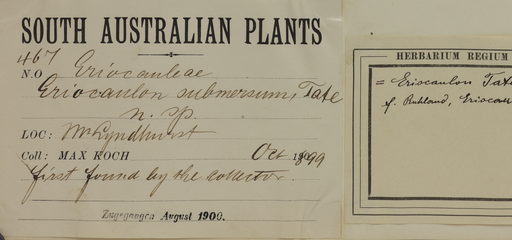 SOUTH AUSTRALIAN PLANTS
467
N.O Eriocauleae
Eriocaulon submersum, Tate
n. sp.
LOC: Mt Lyndhurst
Coll: MAX KOCH Oct 1899
first found by the collector.
Zugegangen August 1900.
HERBARIUM REGIUM
= Eriocaulon Tate
cf. Ruhland, Eriocau